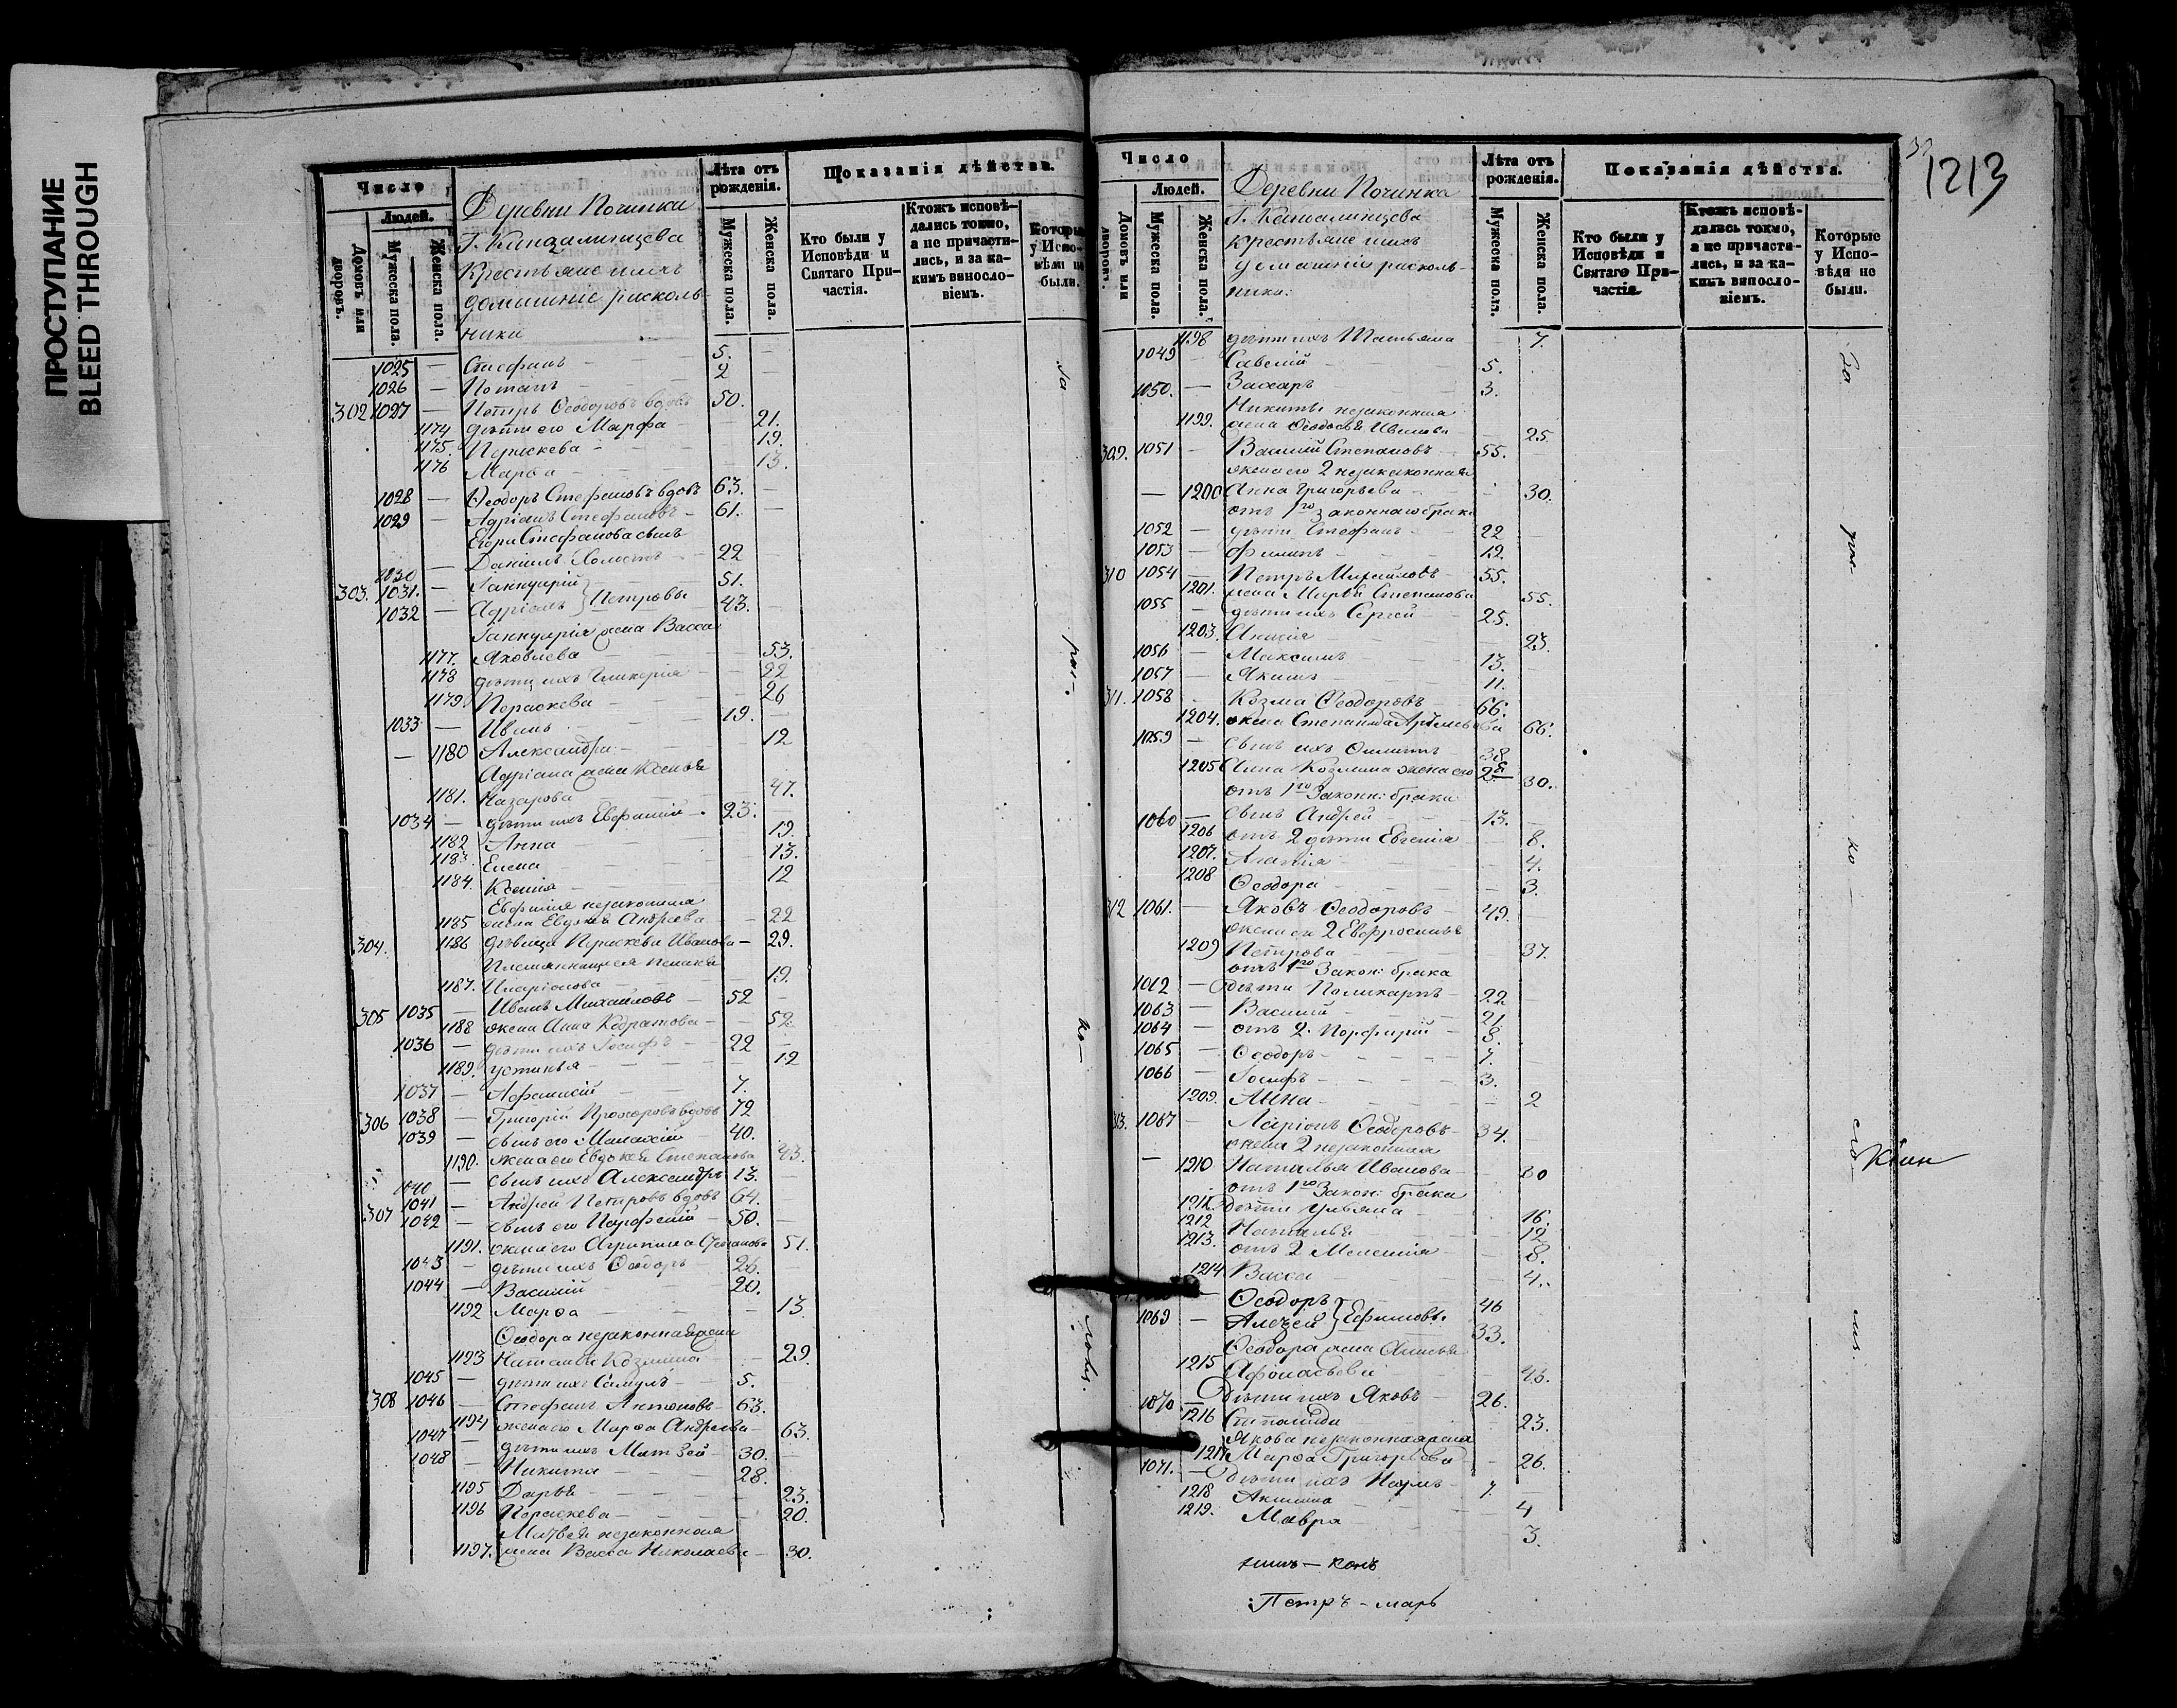 ПРОСТУПАНИЕ
BLEED THROUGH
Число
Людей.
Домовъ или дворовъ.
Мужеска пола.
Женска пола.
Деревни Починка
Г.
крестьяне ихъ
домашніе расколь-
ники
Лѣта отъ рожденія.
Мужеска пола.
Женска пола.
Показанія дѣйства.
Кто были у Исповѣди и Святаго При-частія.
Ктожъ исповѣ-дались токмо, а не причасти-лись, и за ка-кимъ винослo-віемъ.
Которые у Испо-вѣди не были.
1025 — Стефанъ — 5. —
1026 — Потапъ — 2 —
302 1027 — Петръ Ѳеодоровъ вдовъ 50.
1174 дѣти его Марфа — 21.
1175. Параскева — 19.
1176 Марья — 13.
1028 — Ѳеодоръ Стефановъ вдовъ 63. —
1029 — Адріанъ Стефановъ — 61. —
Стефанова сынъ
1030 — Даніилъ Холостъ — 22
303. 1031. — Іаннуарій 51.
1032 — Адріанъ } Петровы 43.
Іаннуарія жена Васса
1177. Яковлева — 53.
1178 дѣти ихъ Гликерія — 22
1179 Параскева — 26
1033 — Иванъ 19. —
— 1180 Александра — 12
Адріана жена Ксенія
1181. Назарова — 47.
1034 — дѣти ихъ Евфимій — 23.
1182 Анна — 19.
1183. Елена — 13.
1184. Ксенія — 12
Евфимія незаконная
1185 жена Евдокія Андреева — 22
304. 1186 дѣвица Параскева Иванова — 29.
1187. Иларіонова — 19.
305 1035 — Иванъ Михайловъ — 52 —
1188 жена Анна Кодратова — 52
1036 — дѣти ихъ Іосифъ — 22 —
1189. Устинья — 12
1037 — Афанасій — 7.
306 1038 — Григорій Прохоровъ вдовъ 72
1039 — сынъ его Малахій 40.
1190. жена его Евдокія Степанова 43.
1040 — сынъ ихъ Александръ 13.
1041 — Андрей Петровъ вдовъ 64.
307 1042 — сынъ его Парфеній — 50.
1191. жена его Агрипина Степанова 51.
1043 — дѣти ихъ Ѳеодоръ — 26. —
1044 — Василій — 20.
1192 Марфа — 13
Ѳеодора незаконная жена
1193 Наталья Козмина — 29.
1045 — дѣти ихъ Самуилъ — 5.
308 1046 — Стефанъ Антоновъ — 63.
1194 жена его Марфа Андреева — 63.
1047 — дѣти ихъ Матвей — 30.
1048 — Никита — 28.
1195 Дарья — 23.
1196 Параскева — 20.
Матвея незаконная
1197. жена Васса Николаева — 30.
За
рас-
ко-
ломъ.
1213
Число
Людей.
Домовъ или дворовъ.
Мужеска пола.
Женска пола.
Деревни Починка
Г.
крестьяне ихъ
домашніе расколь-
ники.
Лѣта отъ рожденія.
Мужеска пола.
Женска пола.
Показанія дѣйства.
Кто были у Исповѣди и Святаго При-частія.
Ктожъ исповѣ-дались токмо, а не причасти-лись, и за ка-кимъ винослo-віемъ.
Которые у Испо-вѣди не были.
1198 дѣти ихъ Татьяна — 7.
1049 — Савелій — 5.
1050. — Захаръ — 3.
Никиты незаконная
1199. жена Ѳеодосья Иванова — 25.
309. 1051 — Василій Степановъ 55.
жена его 2 незаконная
— 1200 Анна Григорьева — 30.
отъ 1го законнаго брака
1052 — дѣти Стефанъ — 22
1053 — Филипъ — 12.
310 1054 — Петръ Михайловъ — 55.
1201. жена Марья Степанова 55.
1055 — дѣти ихъ Сергей — 25.
1203. 23.
1056 — Максимъ — 13.
1057 — Якимъ — 11.
311. 1058 — Козма Ѳеодоровъ — 66.
1204. жена Степанида Артемьева 66.
1059 — сынъ ихъ 38
1205 Анна Козмина жена его 30.
отъ 1го Законн: брака
1060 — сынъ Андрей — 13.
1206 отъ 2 дѣти Евгенія — 8.
1207. Агапія — 4.
1208 Ѳеодора — 3.
312 1061. — Яковъ Ѳеодоровъ — 49. —
жена его 2 Евфросинья
1209 Петрова — 37.
отъ 1го Закон: брака
1062 — дѣти Поликарпъ — 22
1063 — Василій — 21
1064 — отъ 2. Порфирій — 8.
1065 — Ѳеодоръ — 7.
1066 — Іосифъ — 3.
1209. Анна — 2
313. 1067 — Ларіонъ Ѳеодоровъ — 34.
жена 2 незаконная
— 1210 Наталья Иванова — 30
отъ 1го Закон: брака
1211. Дѣти Ульяна — 16.
1212 Наталья — 12
1213. отъ 2 Мелетія — 8.
1214 Васса — 4.
— Ѳеодоръ 46
1069 — Алексѣй } Ефимовы 33.
Ѳеодора жена Анисья
1215 Афонасьева — 43.
1070 — Дѣти ихъ Яковъ — 26.
1216 Степанида — 23.
Якова незаконная жена
1217 Марфа Григорьева — 26.
1071. — Дѣти ихъ Наумъ — 7. —
1218 Акилина — 4
1219. Мавра — 3.
За
рас-
ко-
Петръ — марь